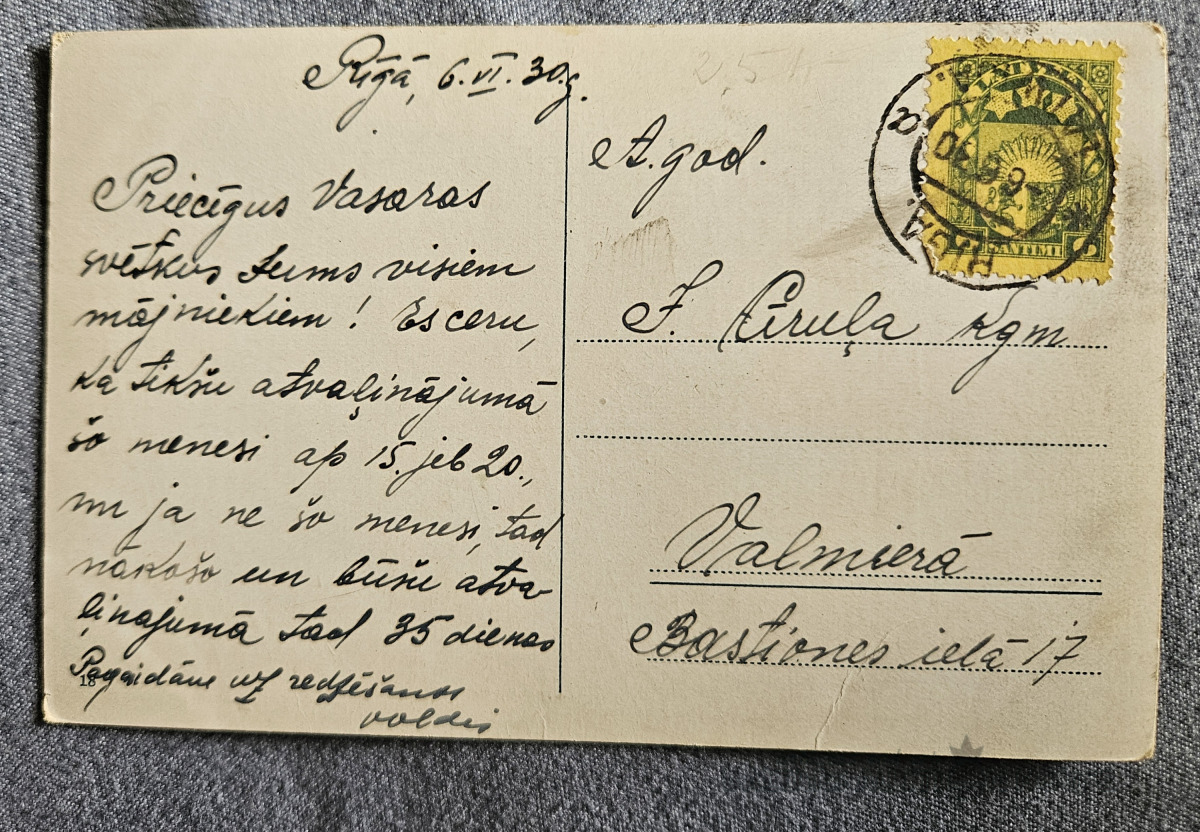 Rīgā, 6.VI.30.g.
Priecīgus Vasaras
svētkus Jums visiem
mājniekiem! Es ceru,
ka tikšu atvaļinājumā
šo menesi ap 15. jeb 20.,
nu ja ne šo menesi, tad
nākošo un būšu atva-
ļinajumā tad 35 dienas
Pagaidām uz redzēšanos
Voldis
18
A. god.
J. Cīruļa kgm
Valmierā
Bastiones ielā 17
LATVIJA
SANTIMI
RIGA